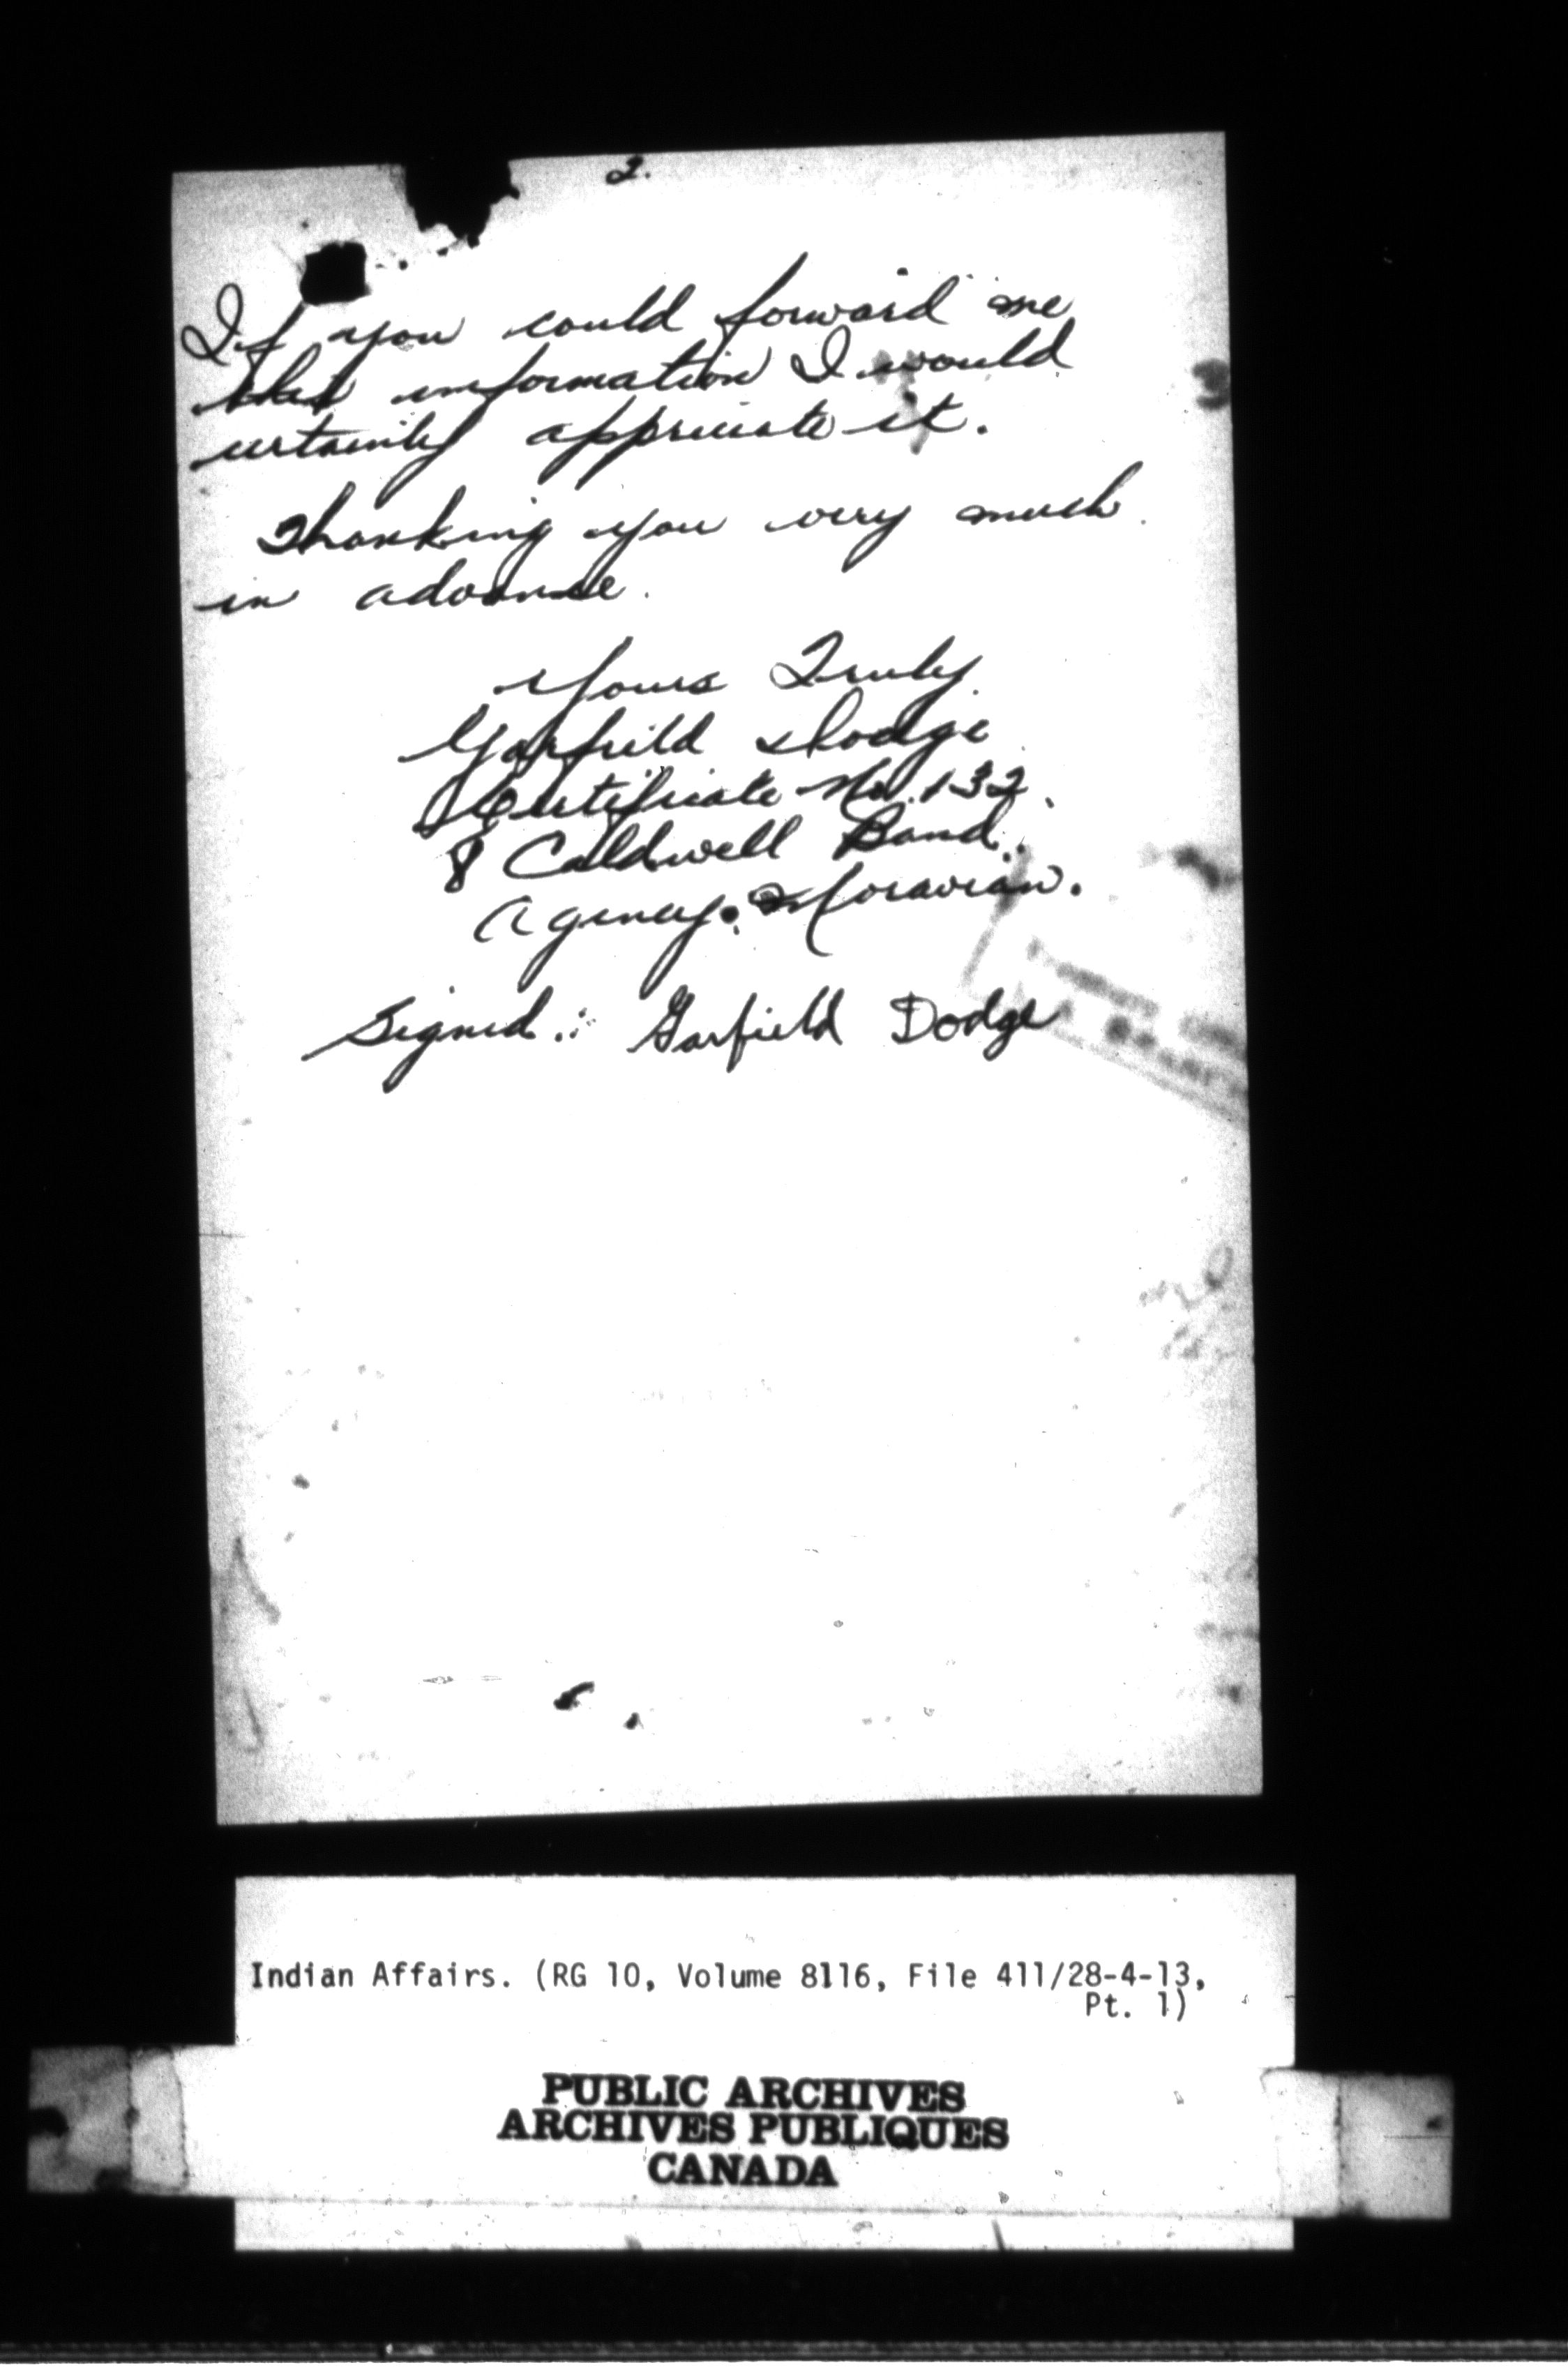 2.
If you could forward me
this information I would
certainly appriciate it.
Thanking you very much
in advance.
Yours Truly
Garfield Dodge
Certificate No. 132.
8 Caldwell Band.
Agency. Moravian.
Signed.: Garfield Dodge
Indian Affairs. (RG 10, Volume 8116, File 411/28-4-13,
Pt. 1)
PUBLIC ARCHIVES
ARCHIVES PUBLIQUES
CANADA